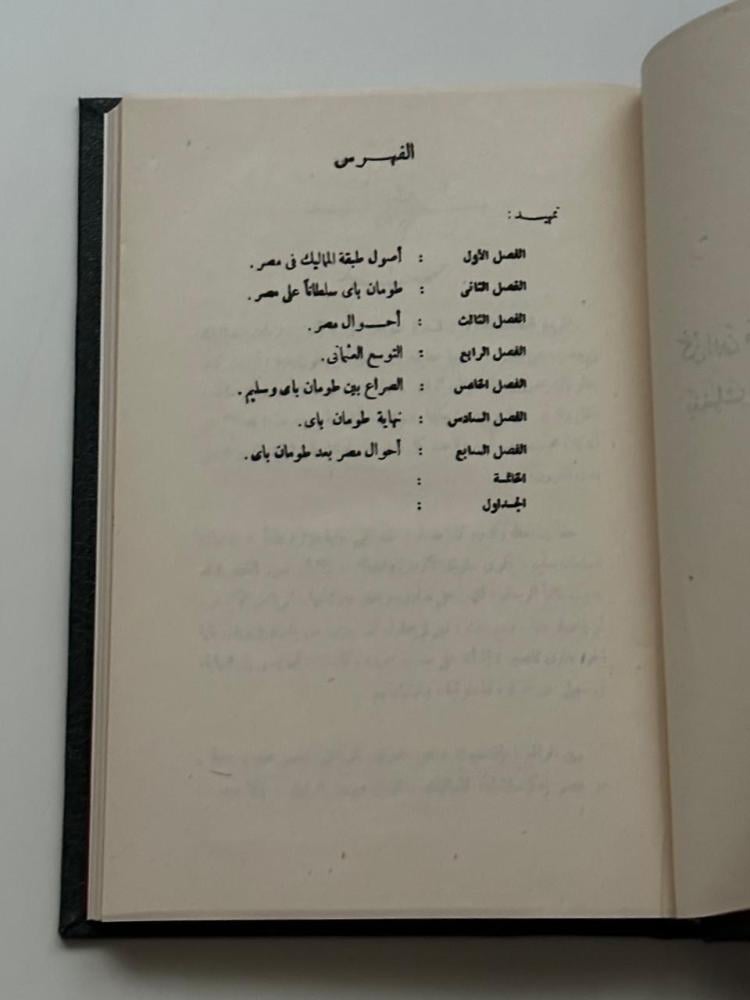 الفهرس
تمهيد :
الفصل الأول : أصول طبقة المماليك فى مصر .
الفصل الثانى : طومان باى سلطاناً على مصر .
الفصل الثالث : أحوال مصر .
الفصل الرابع : التوسع العثمانى .
الفصل الخامس : الصراع بين طومان باى وسليم .
الفصل السادس : نهاية طومان باى .
الفصل السابع : أحوال مصر بعد طومان باى .
الخاتمة :
الجداول :